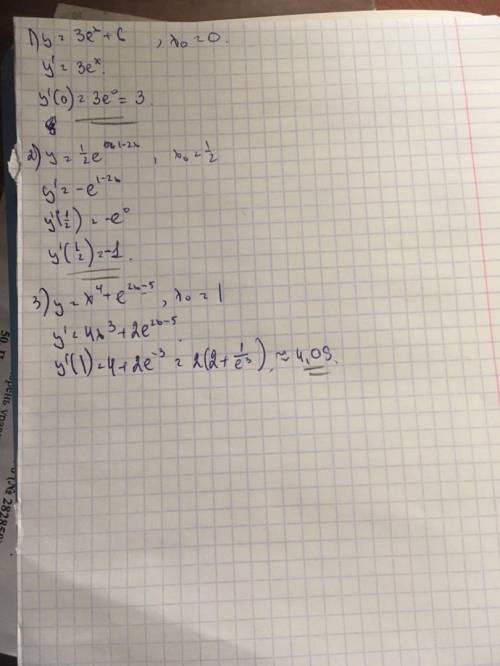 1) y = 3eˣ + 6 , x₀ = 0.
y' = 3eˣ.
y'(0) = 3e⁰ = 3.
2) y = ½e¹⁻²ˣ , x₀ = ½
y' = -e¹⁻²ˣ
y'(½) = -e⁰
y'(½) = -1.
3) y = x⁴ + e²ˣ⁻⁵ , x₀ = 1
y' = 4x³ + 2e²ˣ⁻⁵.
y'(1) = 4 + 2e⁻³ = 2(2 + 1/e³) ≈ 4,09.